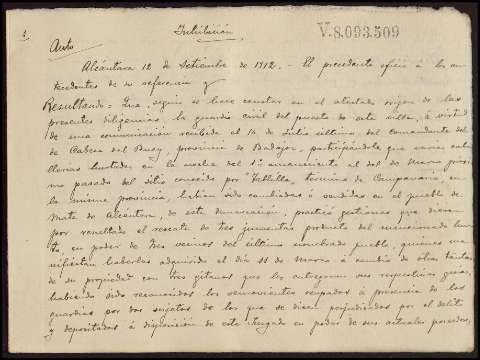 1
Inhibición
V.8.093.509
Auto
Alcántara 12 de Setiembre de 1912.- El precedente oficio á los an
tecedentes de su referencia y
Resultando: Que, según se hace constar en el atestado origen de las
presentes diligencias, la guardia civil del puesto de esta villa, á virtud
de una comunicación recibida el 14 de Julio último del comandante del
de Cabeza del Buey, provincia de Badajoz, participándole que varias caba
llerías hurtadas en la noche del 1º amaneciente al dos de Marzo próxi
mo pasado del sitio conocido por "Tillilla", término de Campanario, en
la misma provincia, habían sido cambiadas ó vendidas en el pueblo de
Mata de Alcántara, de esta demarcación, practicó gestiones que dieron
por resultado el rescate de tres jumentas producto del mencionado hur
to, en poder de tres vecinos del último nombrado pueblo, quienes ma
nifiestan haberlas adquirido el día 11 de Marzo á cambio de otras tantas
de su propiedad con tres gitanos que les entregaron sus respectivas guías,
habiendo sido reconocidos los semovientes ocupados á presencia de los
guardias por dos sujetos de los que se dicen perjudicados por el delito
y depositadas á disposición de este Juzgado en poder de sus actuales poseedores,